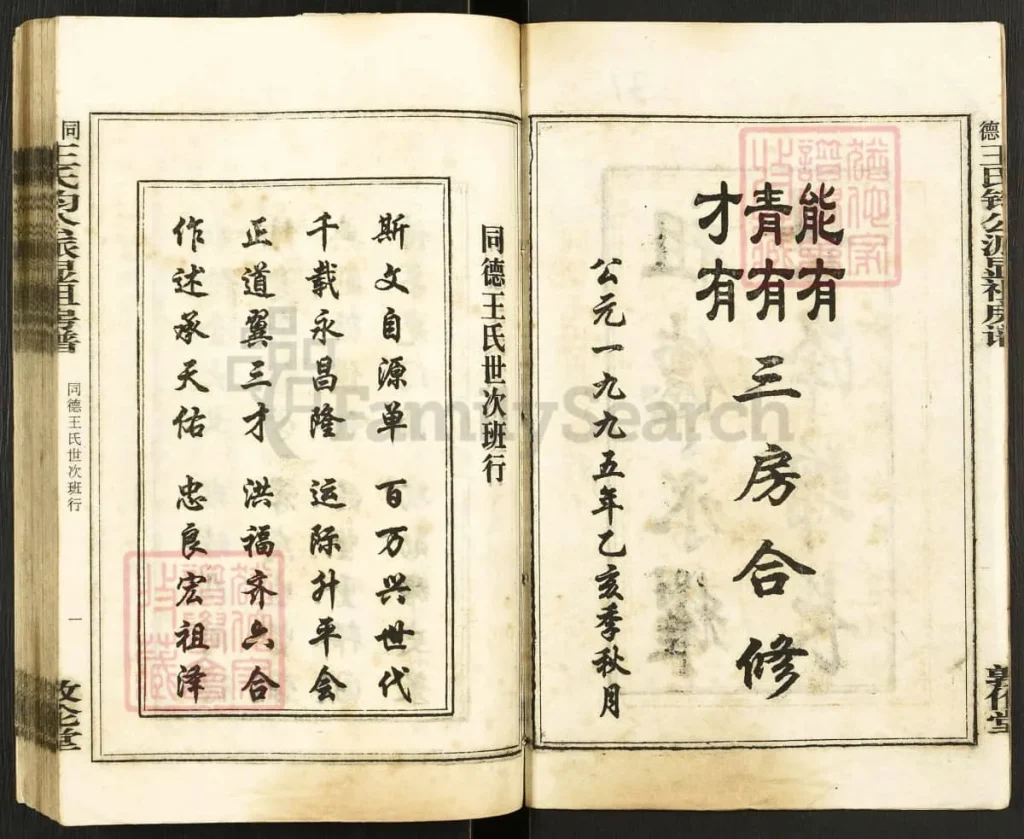 能有
青有
才有
三房合修
公元一九九五年乙亥季秋月
同德王氏世次班行
斯文自源单 百万兴世代
千载永昌隆 运际升平会
正道翼三才 洪福齐六合
作述承天佑 忠良宏祖泽
同德王氏世次班行
一
FamilySearch